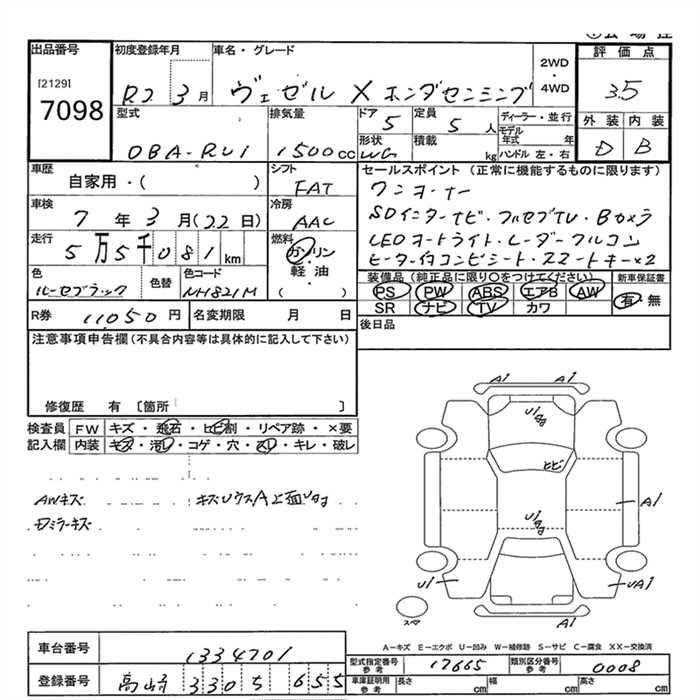 出品番号
[2129]
7098
初度登録年月
R2 3月
車名・グレード
ヴェゼル X ホンダセンシング
2WD
・
4WD
評価点
3.5
外装 内装
D B
型式
DBA-RU1
排気量
1500cc
ドア
5
定員
5人
ディーラー・並行
モデル年式 年
ハンドル 左・右
形状
WG
積載
kg
車歴
自家用・( )
シフト
FAT
車検
7年3月(22日)
冷房
AAC
走行
5万5千081km
燃料
ガソリン
軽・油
( )
色
ルーセブラック
色替
色コード
NH821M
セールスポイント(正常に機能するものに限ります)
ワンオーナー
SDインターナビ・フルセグTV・Bカメラ
LEDオートライト・レーダークルコン
ヒーター付コンビシート・スマートキー×2
装備品(純正品に限り○をつけてください)
PS PW ABS エアB AW
SR ナビ TV カワ
新車保証書
有・無
R券 11050円
名変期限 月 日
後日品
注意事項申告欄(不具合内容等は具体的に記入して下さい)
修復歴 有 [箇所 ]
検査員記入欄
FW キズ・飛石・ヒビ割・リペア跡・×要
内装 キズ・汚レ・コゲ・穴・スレ・キレ・破レ
AWキズ
Dミラーキズ
A1 A1
U1
ヒビ
U1
A1
U1
UA1
A1
スマ
A-キズ E-エクボ U-凹み W-補修跡 S-サビ C-腐食 XX-交換済
車台番号
1334701
登録番号
高崎 330 ら 655
型式指定番号
参考
17665
類別区分番号
参考
0008
車庫証明用
参考
長さ cm 幅 cm 高さ cm